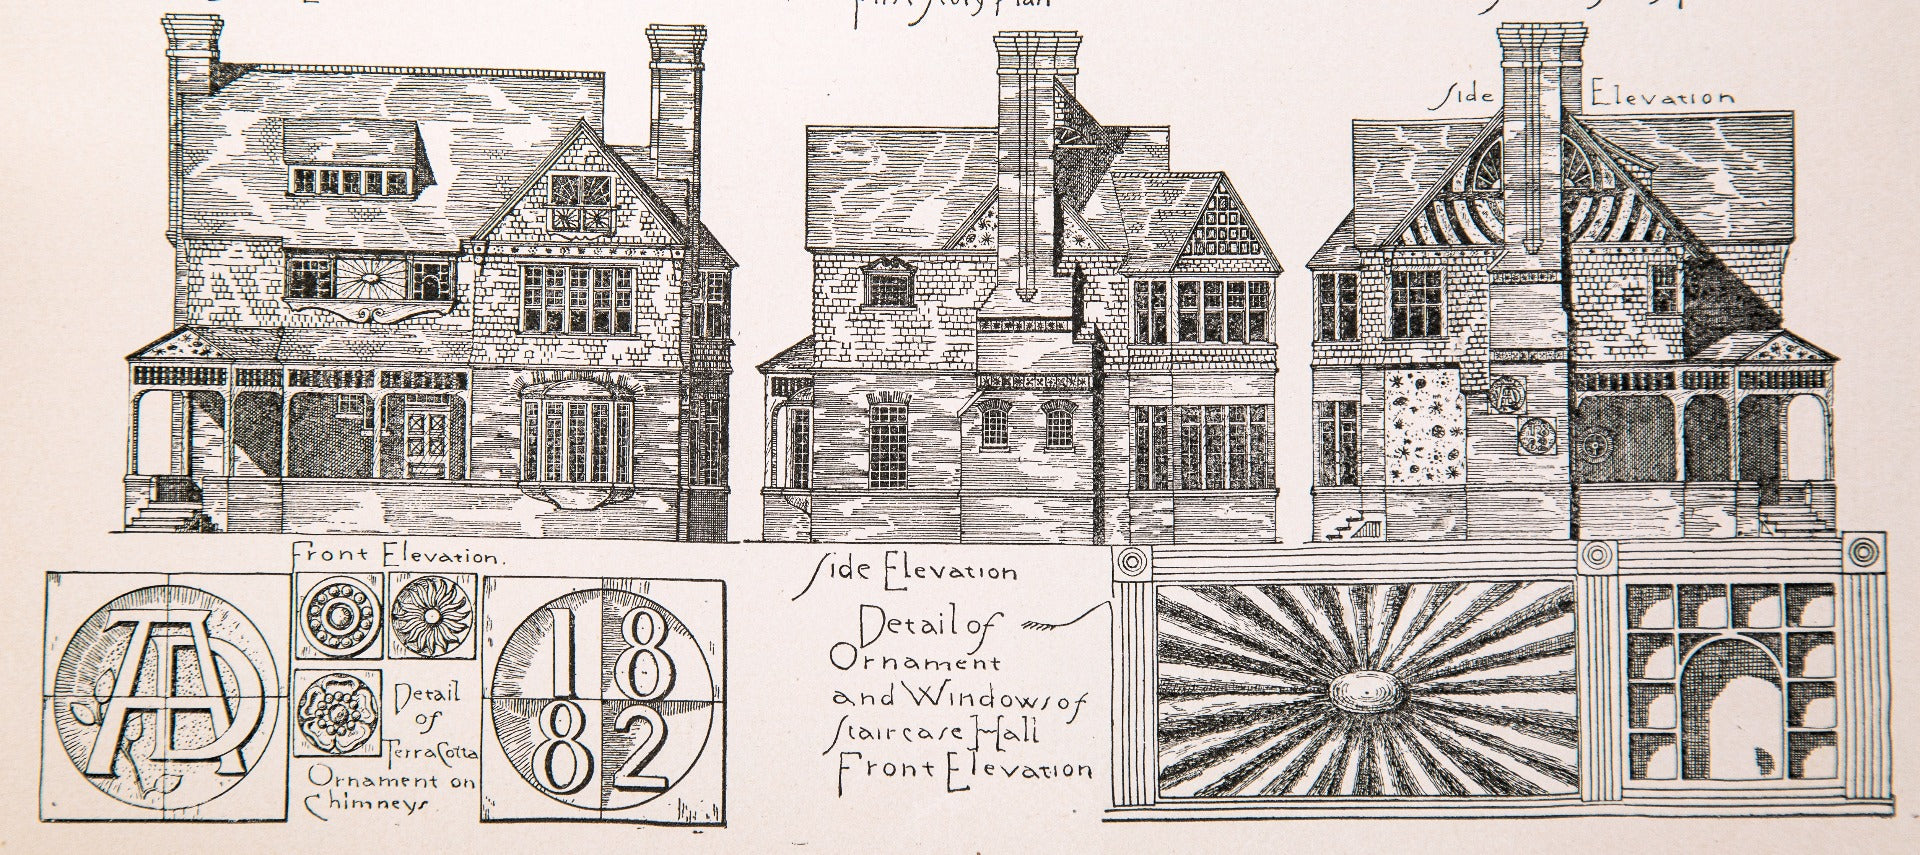 First Story plan
Side Elevation
Front Elevation.
Side Elevation
AD
Detail
of
Terra Cotta
Ornament on
Chimneys.
18
82
Detail of
Ornament
and Windows of
Staircase Hall
Front Elevation